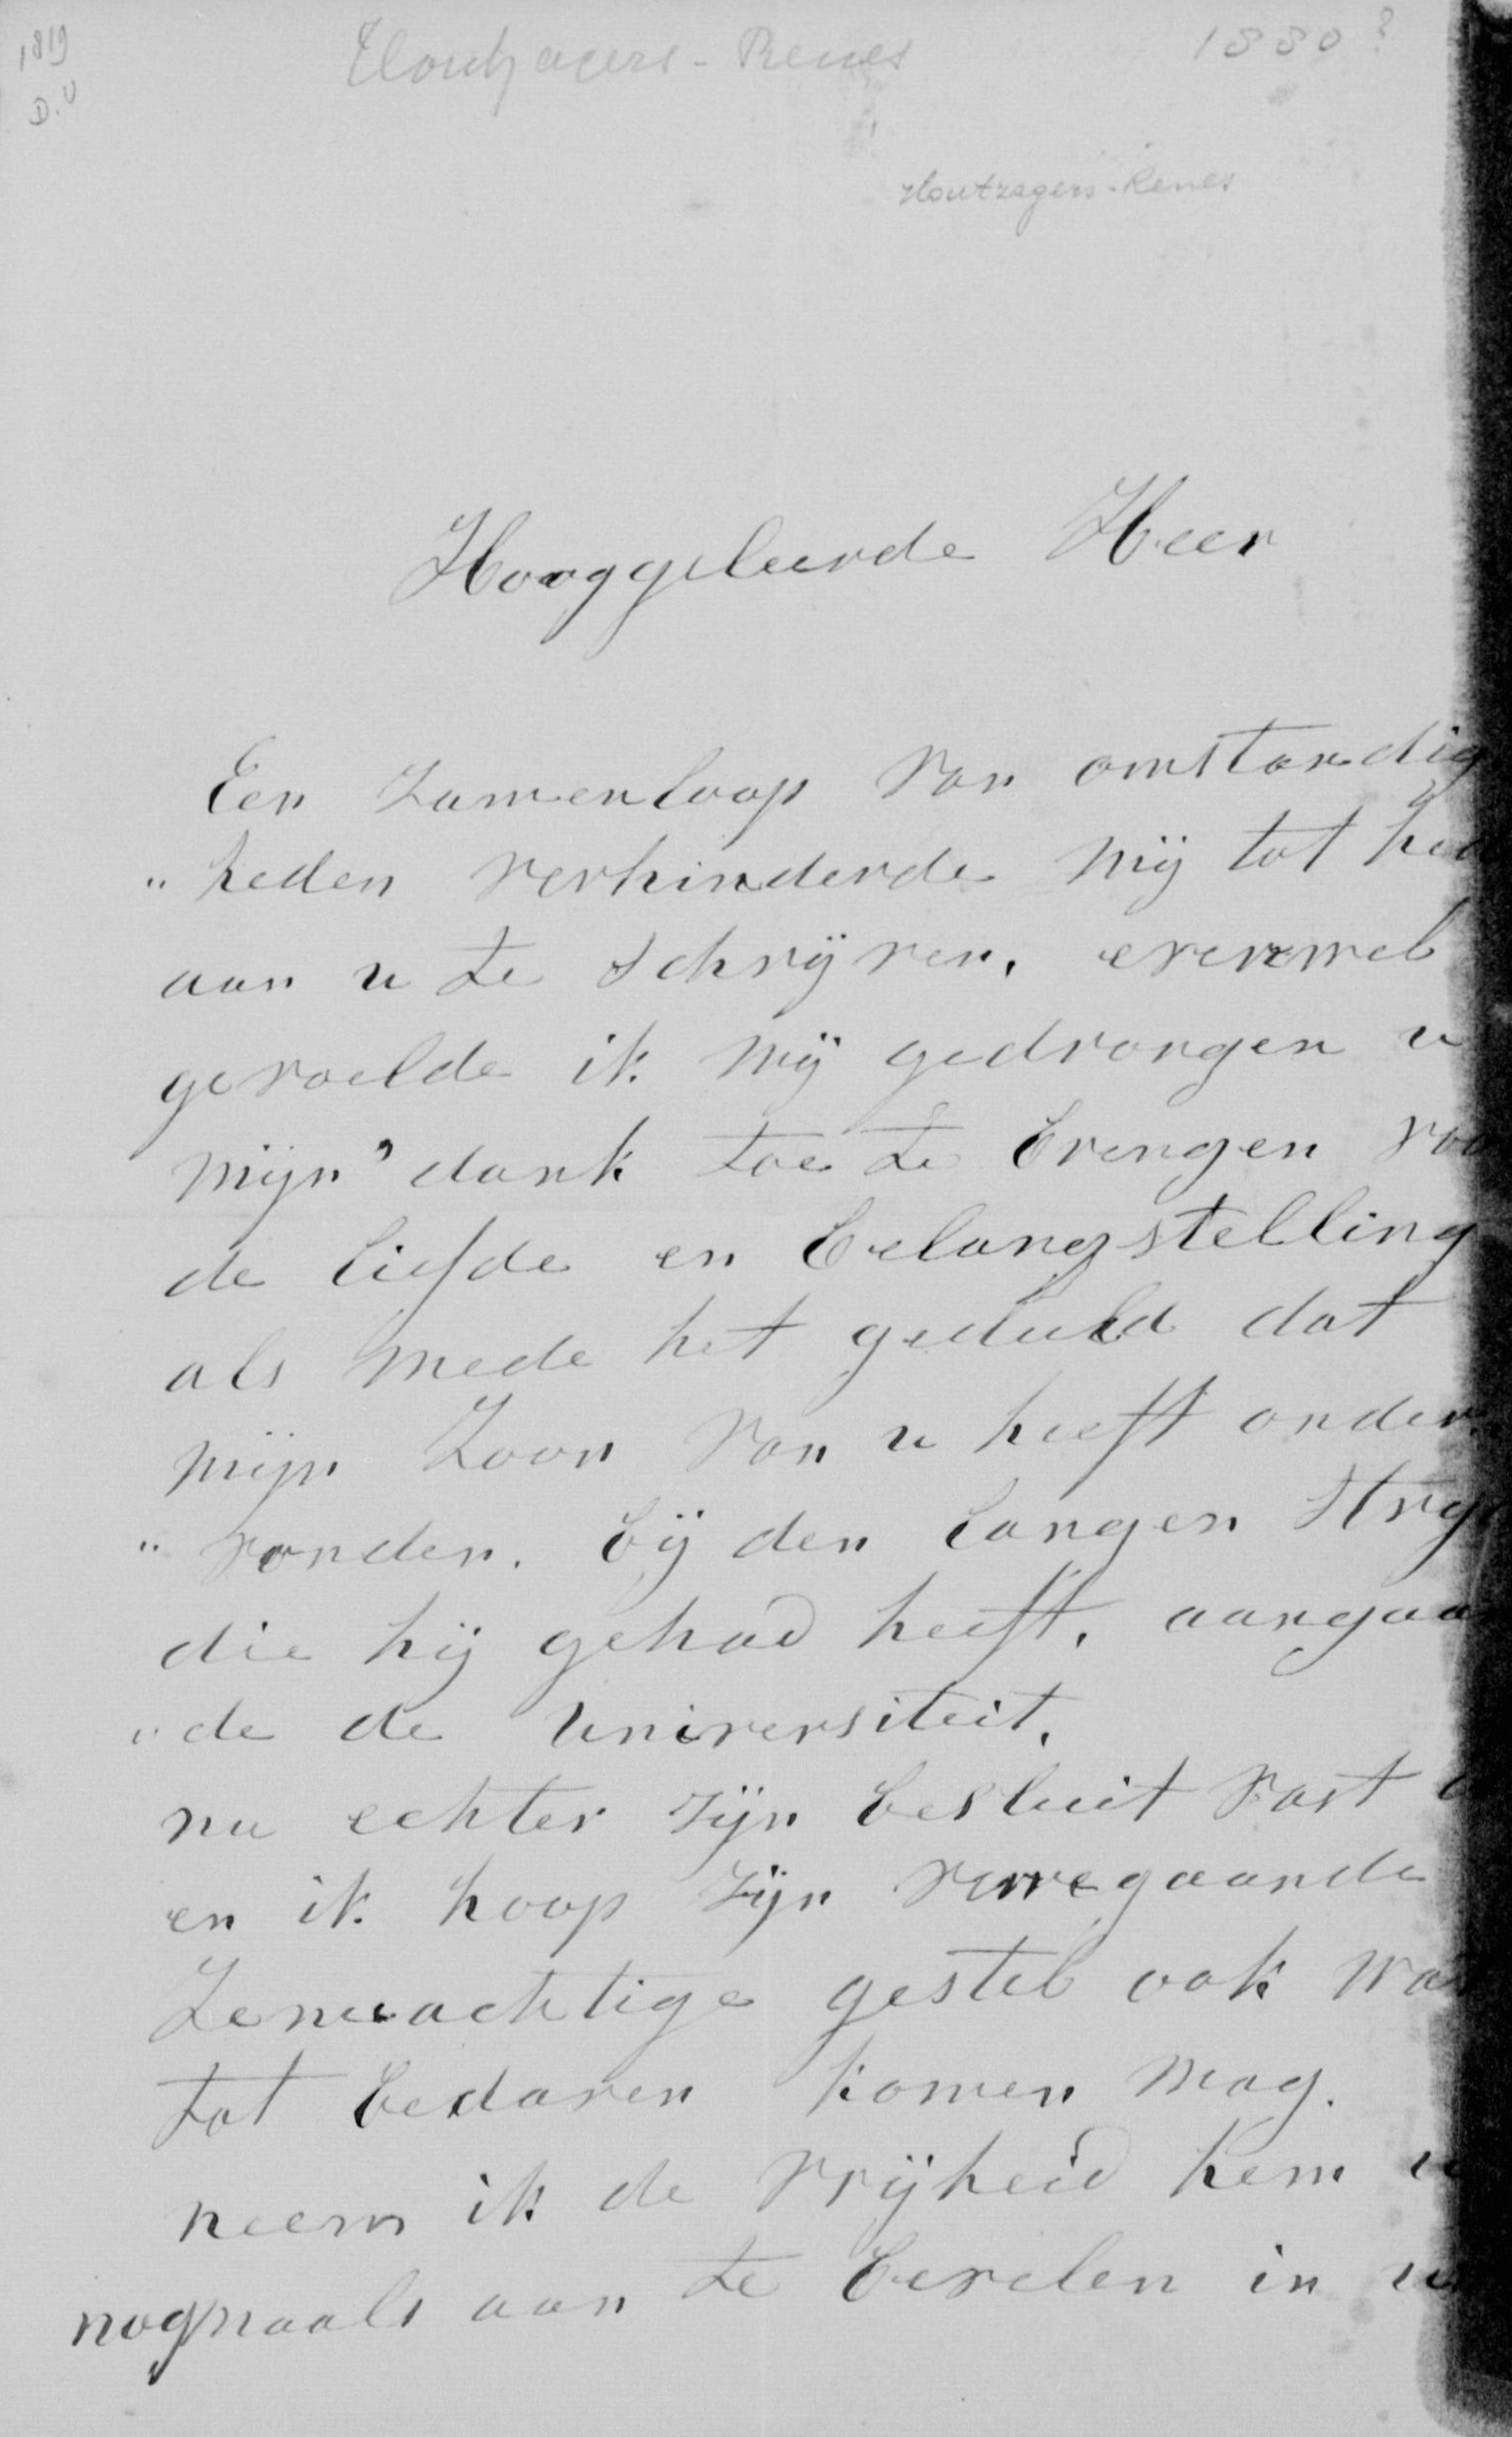 1819
D.V
Houtzagers-Renes
1880?
Houtzagers-Renes
Hooggeleerde Heer
Een zamenloop van omstandig
„ heden verhinderde mij tot
aan u te schrijven, evenwel
gevoelde ik mij gedrongen u
mijn' dank toe te brengen
de liefde en belangstelling
als mede het geduld dat
mijn Zoon van u heeft onder
„ vonden. bij den langen
die hij gehad heeft, aangaa
„ de de universiteit,
nu echter zijn besluit vast
en ik hoop zijn verregaande
Zenuachtige gestel ook
tot bedaren komen mag.
neem ik de vrijheid hem
nogmaals aan te bevelen in